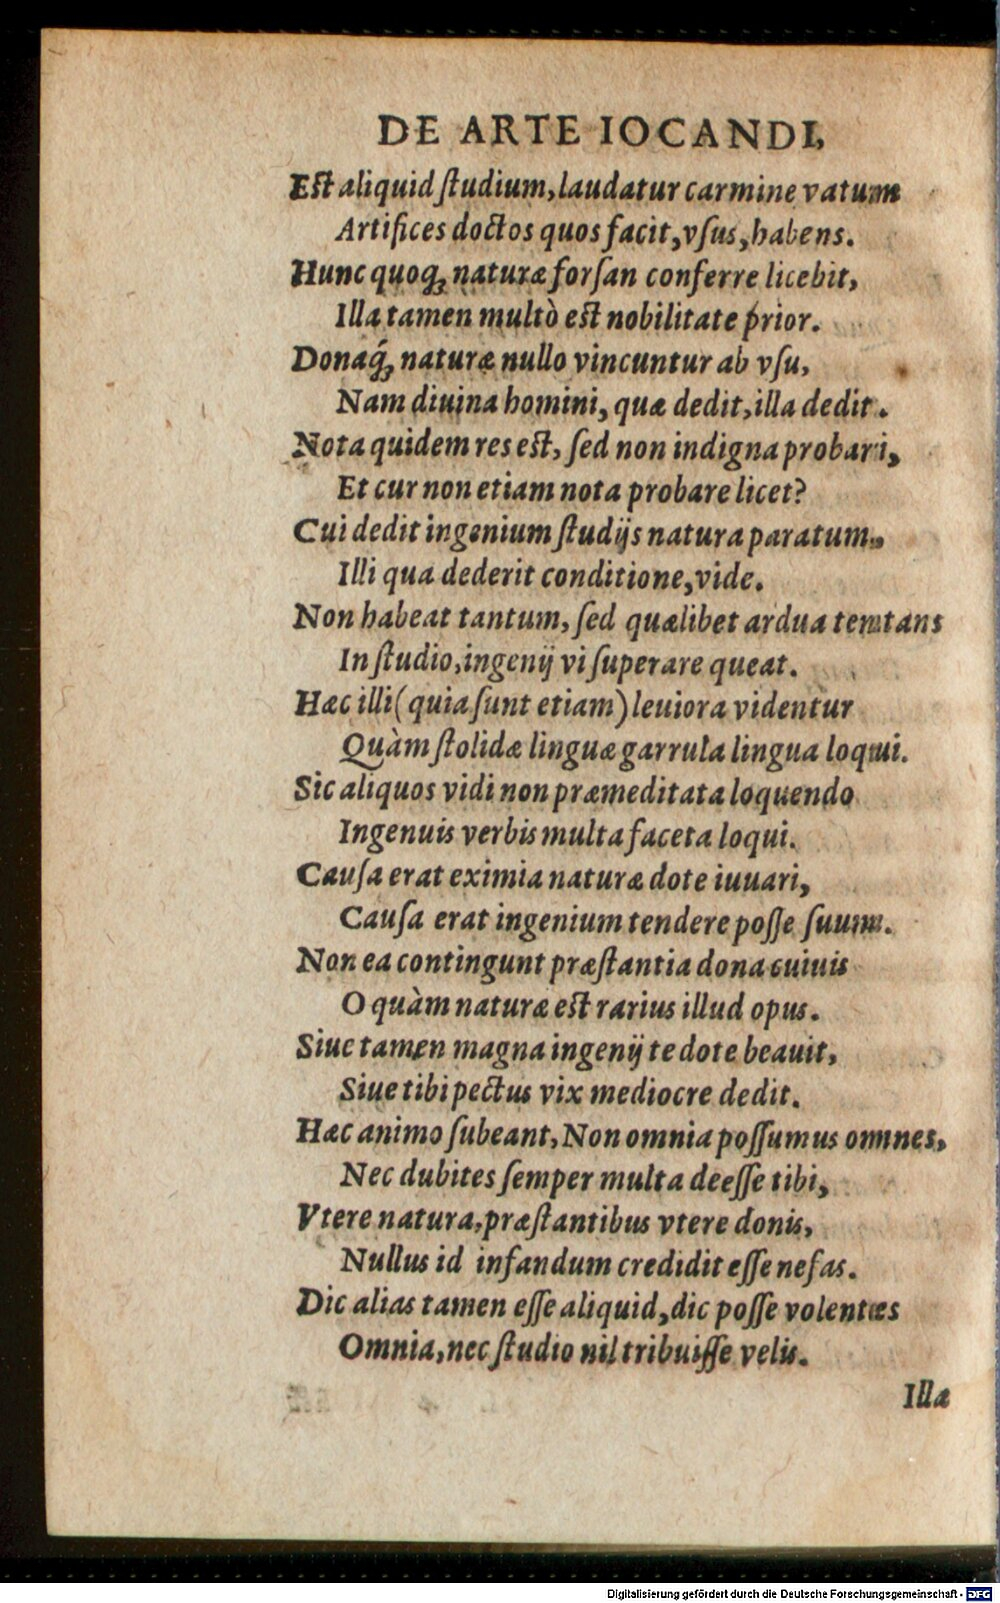 DE ARTE IOCANDI,
Est aliquid ſtudium, laudatur carmine vatum
Artifices doctos quos facit, vſus, habens.
Hunc quoq; naturæ forſan conferre licebit,
Illa tamen multò est nobilitate prior.
Donaq́; naturæ nullo vincuntur ab vſu,
Nam diuina homini, quæ dedit, illa dedit.
Nota quidem res est, ſed non indigna probari,
Et cur non etiam nota probare licet?
Cui dedit ingenium ſtudijs natura paratum,
Illi qua dederit conditione, vide.
Non habeat tantum, ſed quælibet ardua temtans
In ſtudio, ingenij vi ſuperare queat.
Hæc illi (quia ſunt etiam) leuiora videntur
Quàm ſtolidæ linguæ garrula lingua loqui.
Sic aliquos vidi non præmeditata loquendo
Ingenuis verbis multa faceta loqui.
Cauſa erat eximia naturæ dote iuuari,
Cauſa erat ingenium tendere poſſe ſuum.
Non ea contingunt præſtantia dona cuiuis
O quàm naturæ est rarius illud opus.
Siue tamen magna ingenij te dote beauit,
Siue tibi pectus vix mediocre dedit.
Hæc animo ſubeant, Non omnia poſſumus omnes,
Nec dubites ſemper multa deeſſe tibi,
Vtere natura, præſtantibus vtere donis,
Nullus id infandum credidit eſſe nefas.
Dic alias tamen eſſe aliquid, dic poſſe volentes
Omnia, nec ſtudio nil tribuiſſe velis.
Illa
Digitalisierung gefördert durch die Deutsche Forschungsgemeinschaft - DFG